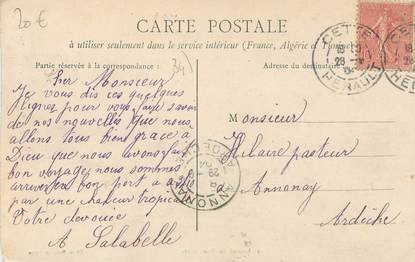 20€
CARTE POSTALE
à utiliser seulement dans le service intérieur (France, Algérie et Tunisie)
Partie réservée à la correspondance :
Adresse du destinataire
341
CETTE
HÉRAULT
Cher Monsieur
Je vous dis ces quelques
lignes pour vous faire savoir
de nos nouvelles que nous
allons tous bien grace a
Dieu que nous avons fait
bon voyage nous sommes
arriver a bon port
par une chaleur tropical
Votre devouée
A Salabelle
ANNONAY
ARDÈCHE
M
Monsieur
Hilaire pasteur
a
Annonay
Ardèche